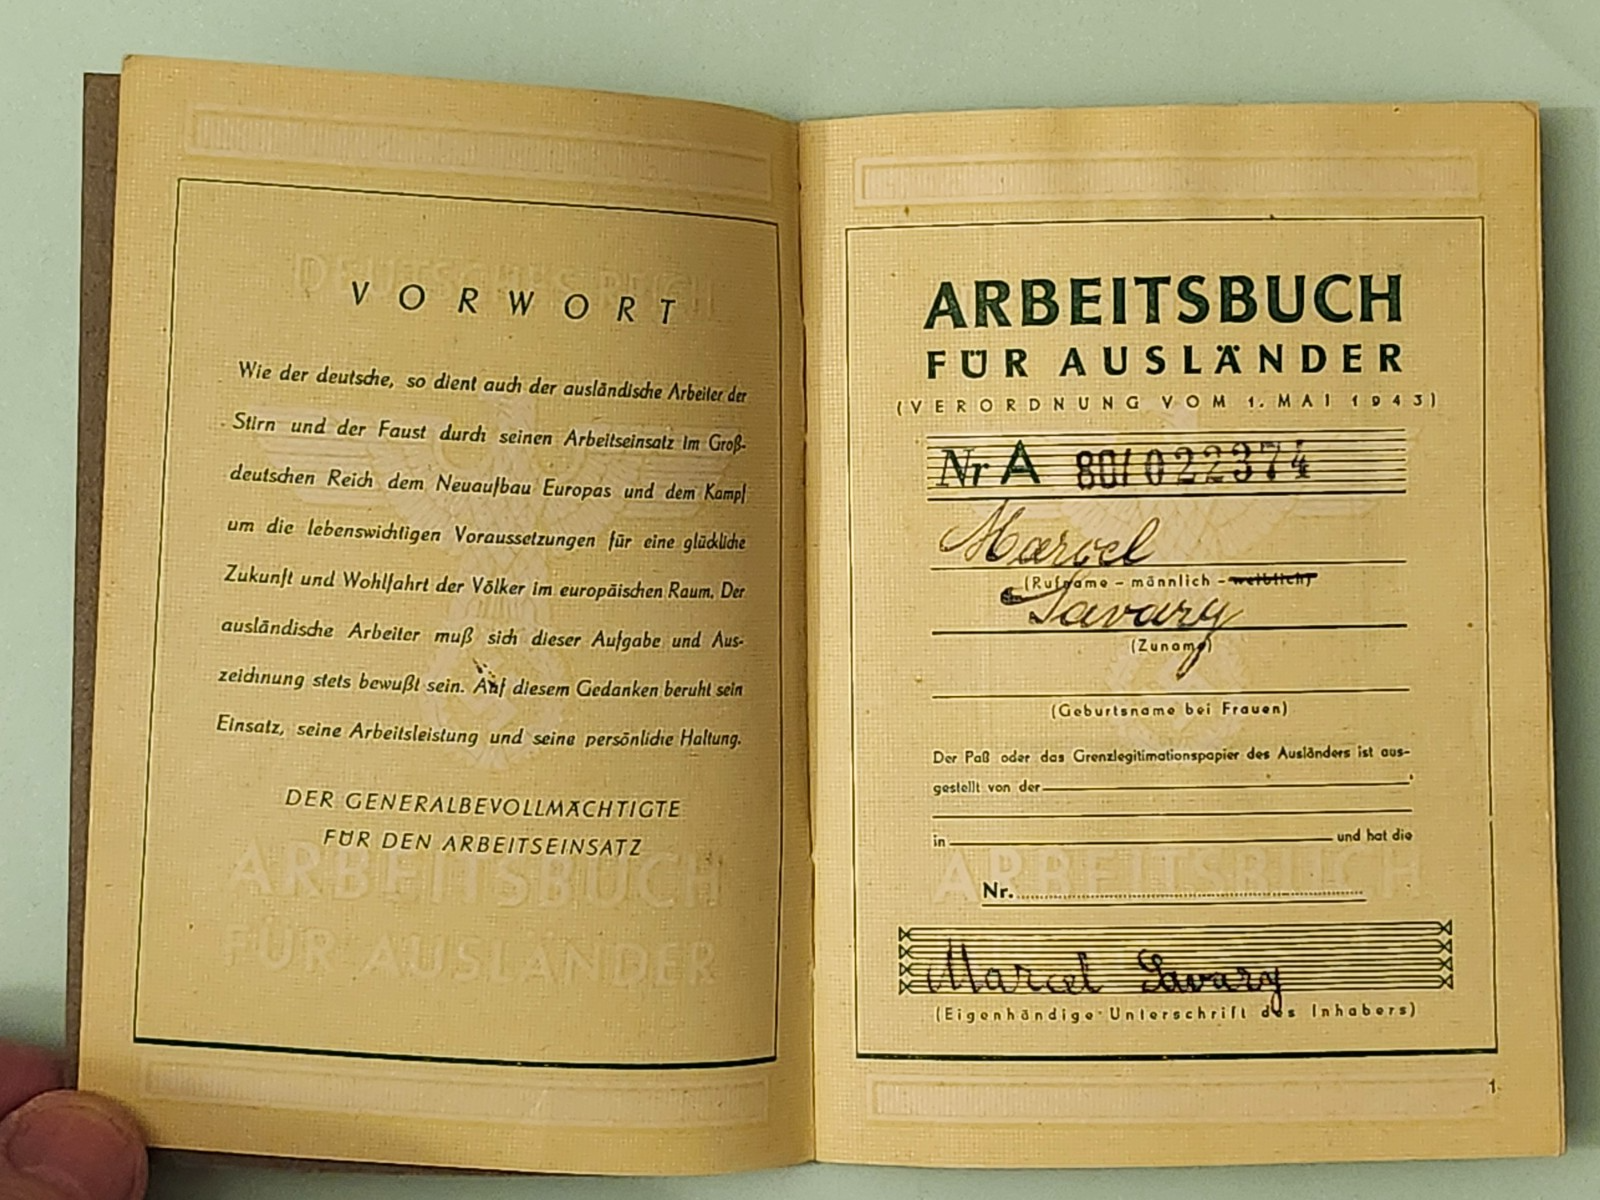 DEUTSCHES REICH
VORWORT
Wie der deutsche, so dient auch der ausländische Arbeiter der
Stirn und der Faust durch seinen Arbeitseinsatz im Groß-
deutschen Reich dem Neuaufbau Europas und dem Kampf
um die lebenswichtigen Voraussetzungen für eine glückliche
Zukunft und Wohlfahrt der Völker im europäischen Raum. Der
ausländische Arbeiter muß sich dieser Aufgabe und Aus-
zeichnung stets bewußt sein. Auf diesem Gedanken beruht sein
Einsatz, seine Arbeitsleistung und seine persönliche Haltung.
DER GENERALBEVOLLMÄCHTIGTE
FÜR DEN ARBEITSEINSATZ
ARBEITSBUCH
FÜR AUSLÄNDER
ARBEITSBUCH
FÜR AUSLÄNDER
(VERORDNUNG VOM 1. MAI 1943)
Nr A 80/022374
Marcel
(Rufname – männlich – weiblich)
Savary
(Zuname)
(Geburtsname bei Frauen)
Der Paß oder das Grenzlegitimationspapier des Ausländers ist aus-
gestellt von der
in und hat die
ARBEITSBUCH
Nr.
Marcel Savary
(Eigenhändige Unterschrift des Inhabers)
1